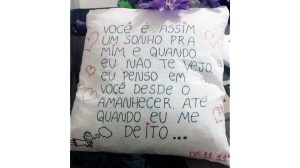 VOCÊ É ASSIM
UM SONHO PRA
MIM E QUANDO
EU NÃO TE VEJO
EU PENSO EM
VOCÊ DESDE O
AMANHECER, ATÉ
QUANDO EU ME
DEITO...
05.11.11